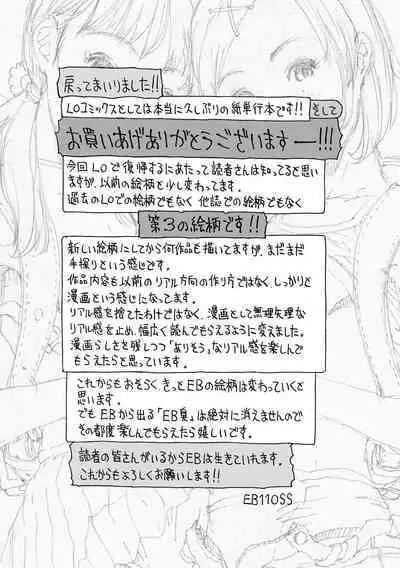 戻ってまいりました!!
LOコミックスとしては本当に久しぶりの紙単行本です!! そして
お買いあげありがとうございますー!!!
今回LOで復帰するにあたって読者さんは知ってると思い
ますが、以前の絵柄と少し変わってます。
過去のLOでの絵柄でもなく他誌での絵柄でもなく
第3の絵柄です!!
新しい絵柄にしてから何作品も描いてますが、まだまだ
手探りという感じです。
作品内容も以前のリアル方向の作り方ではなく、しっかりと
漫画という感じになってます。
リアル感を捨てたわけではなく、漫画として無理矢理な
リアル感を止め、幅広く読んでもらえるように変えました。
漫画らしさを残しつつ「ありそう」なリアル感を楽しんで
もらえたらと思っています。
これからもおそらく、きっとEBの絵柄は変わっていくと
思います。
でもEBから出る「EB臭」は絶対に消えませんので
その都度楽しんでもらえたら嬉しいです。
読者の皆さんがいるからEBは生きていれます。
これからもよろしくお願いします!!
EB110SS